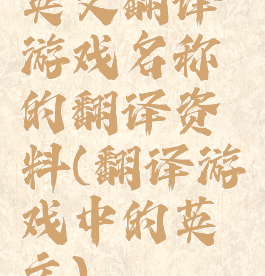 英文翻译
游戏名称
的翻译资
料(翻译游
戏中的英
文)